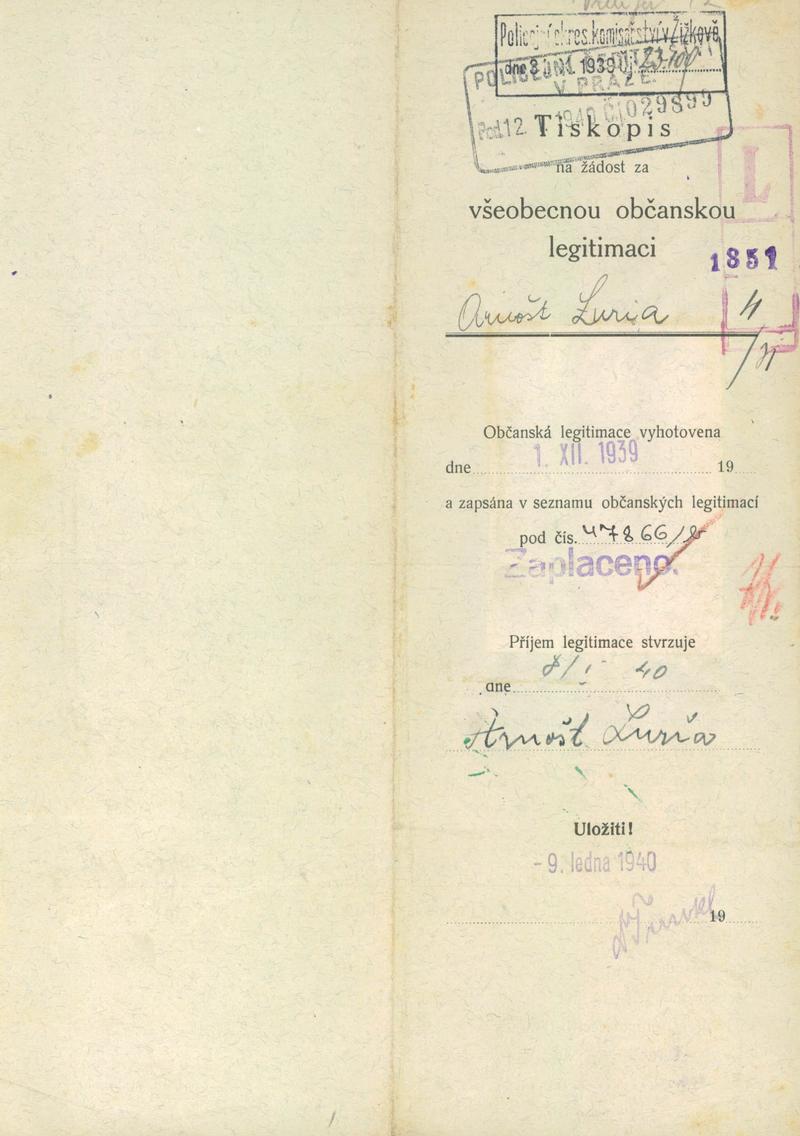 Policejní okres. komisařství v Žižkově
dne 1939
POLICEJNÍ
V PRAZE.
Pod 12. 1940 Čj 029899
Tiskopis
na žádost za
všeobecnou občanskou
legitimaci
L
1851
Arnošt Luria
4
Občanská legitimace vyhotovena
1. XII. 1939
dne 19
a zapsána v seznamu občanských legitimací
pod čís. 47866/
Zaplaceno.
Příjem legitimace stvrzuje
8/I 40
dne
Arnošt Luria
Uložiti!
- 9. ledna 1940
19